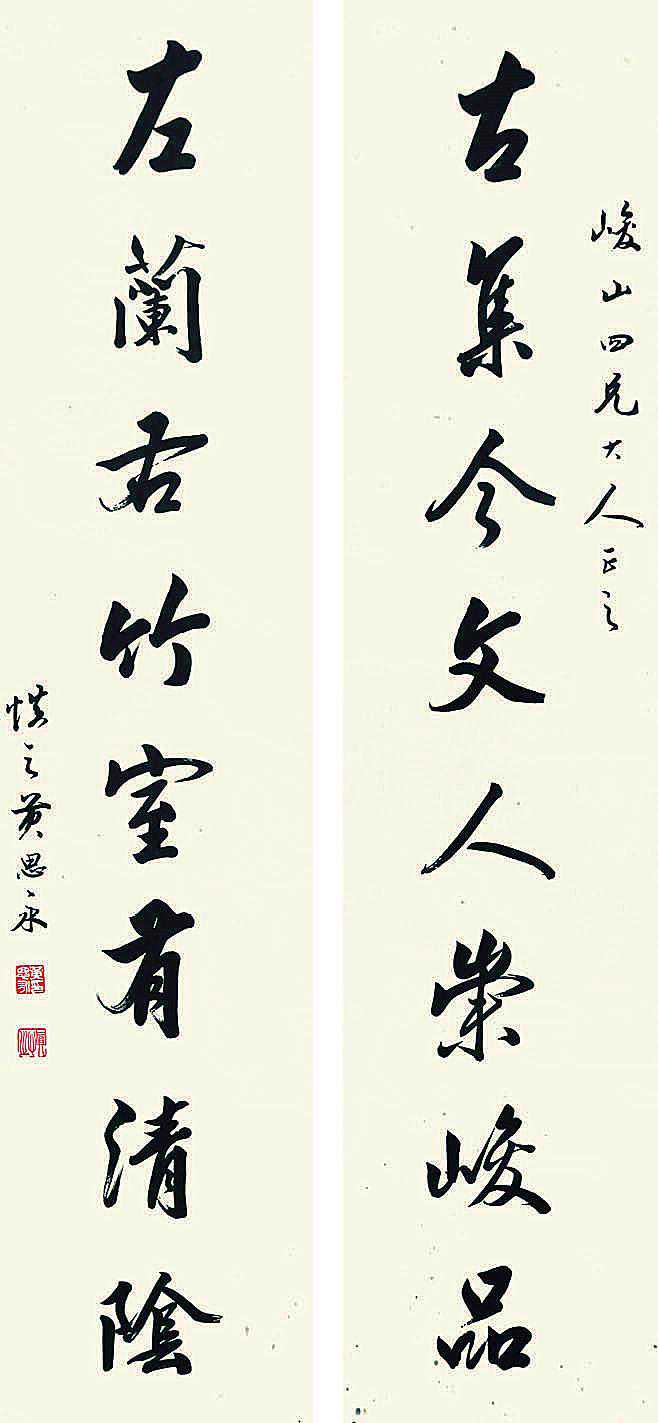 峻山四兄大人正之
古集今文人崇峻品
左蘭右竹室有清陰
慎之黃思永